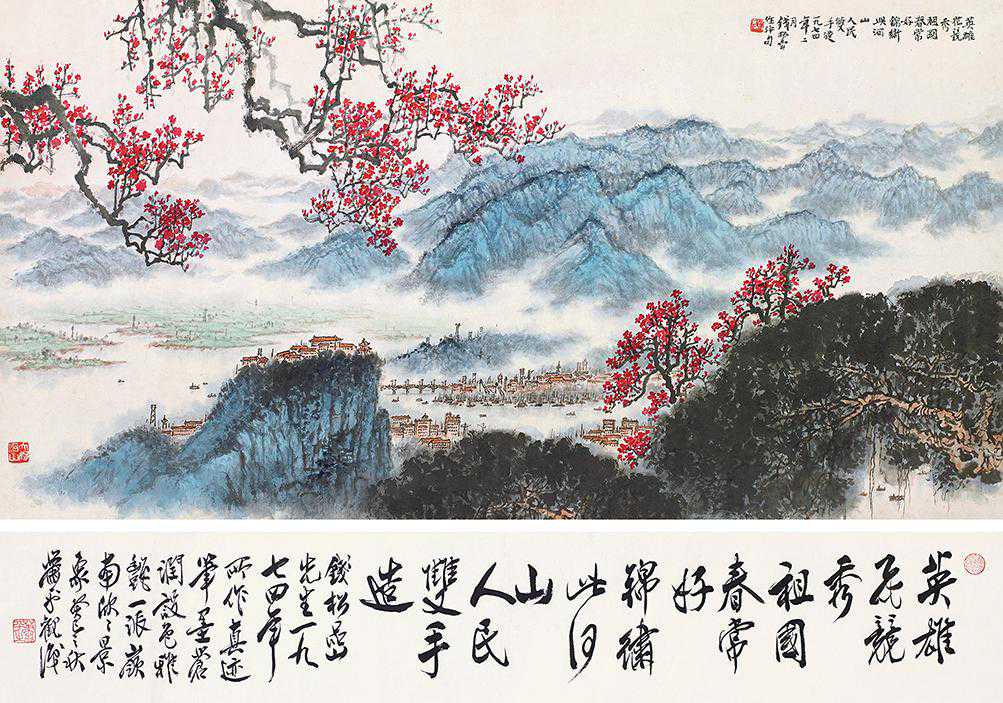 英雄
花競
秀
祖國
春常
好
錦繡
此河
山
人民
雙
手造
一九七四
年二
月
錢松嵒
作并句
英雄
花競
秀
祖國
春常
好
錦繡
此河
山
人民
雙手
造
錢松嵒
先生一九
七四年
所作真迹
筆墨蒼
潤設色雅
艷一派嶺
南欣欣景
象 之秋
蕭平觀識